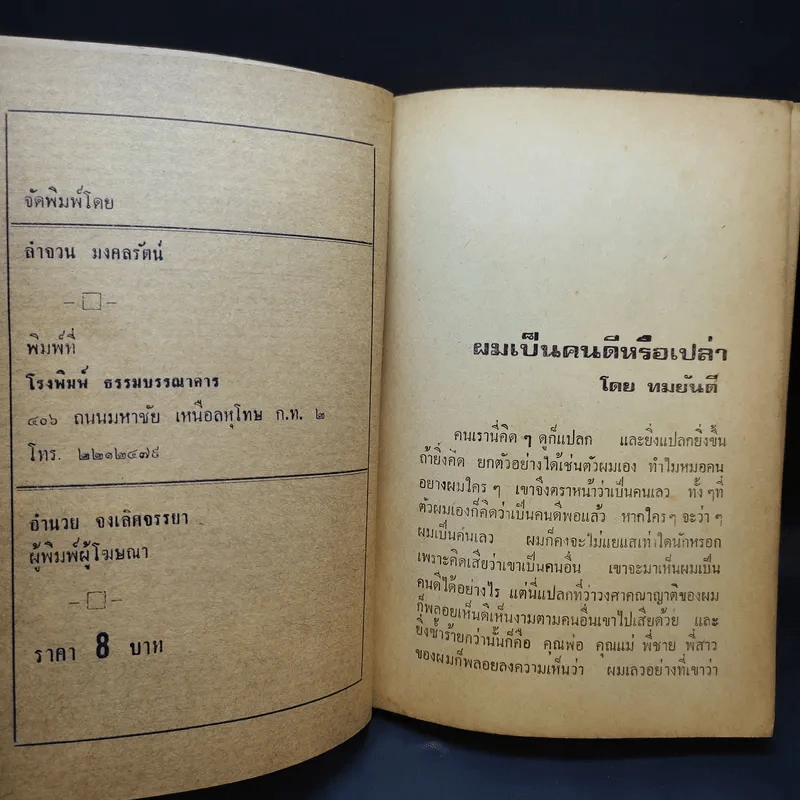 จัดพิมพ์โดย
ลำจวน มงคลรัตน์
พิมพ์ที่
โรงพิมพ์ ธรรมบรรณาคาร
๔๐๖ ถนนมหาชัย เหนือลหุโทษ ก.ท. ๒
โทร. ๒๒๑๒๔๗๙
อำนวย จงเลิศจรรยา
ผู้พิมพ์ผู้โฆษณา
ราคา 8 บาท
ผมเป็นคนดีหรือเปล่า
โดย ทมยันตี
คนเรานี่คิด ๆ ดูก็แปลก และยิ่งแปลกยิ่งขึ้น
ถ้ายิ่งคิด ยกตัวอย่างได้เช่นตัวผมเอง ทำไมหมอคน
อย่างผมใคร ๆ เขาจึงตราหน้าว่าเป็นคนเลว ทั้ง ๆ ที่
ตัวผมเองก็คิดว่าเป็นคนดีพอแล้ว หากใคร ๆ จะว่า ๆ
ผมเป็นคนเลว ผมก็คงจะไม่แยแสเท่าใดนักหรอก
เพราะคิดเสียว่าเขาเป็นคนอื่น เขาจะมาเห็นผมเป็น
คนดีได้อย่างไร แต่นี่แปลกที่ว่าวงศาคณาญาติของผม
ก็พลอยเห็นดีเห็นงามตามคนอื่นเขาไปเสียด้วย และ
ยิ่งซ้ำร้ายกว่านั้นก็คือ คุณพ่อ คุณแม่ พี่ชาย พี่สาว
ของผมก็พลอยลงความเห็นว่า ผมเลวอย่างที่เขาว่า